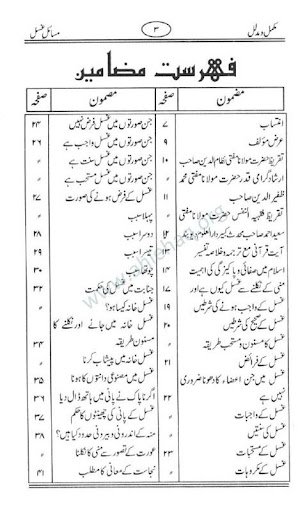 مکمل و مدلل
۳
مسائل غسل
فہرست مضامین
مضمون
صفحہ
انتساب
۷
عرض مؤلف
۹
تقریظ حضرت مولانا مفتی نظام الدین صاحب
۱۰
ارشاد گرامی قدر حضرت مولانا مفتی محمد
ظفیر الدین صاحب
۱۱
تقریظ فقیہ النفس حضرت مولانا مفتی
سعید احمد صاحب محدث کبیر دارالعلوم دیوبند
۱۲
آیت قرآنی مع ترجمہ و خلاصہ تفسیر
اسلام میں صفائی و پاکیزگی کی اہمیت
۱۴
منی کے نکلنے سے غسل کیوں ہے اور
۱۷
غسل کے واجب ہونے کی شرطیں
۱۹
غسل کے صحیح کی شرطیں
۲۰
غسل کا مسنون و مستحب طریقہ
〃
غسل کے فرائض
۲۱
غسل میں جن اعضاء کا دھونا ضروری
نہیں ہے
۲۲
غسل کے واجبات
〃
غسل کی سنتیں
〃
غسل کے مستحبات
۲۳
غسل کے مکروہات
〃
مضمون
صفحہ
جن صورتوں میں غسل فرض نہیں
۲۴
جن صورتوں میں غسل واجب ہے
۲۶
جن صورتوں میں غسل سنت ہے
〃
جن صورتوں میں غسل مستحب ہے
〃
غسل کے فرض ہونے کی صورت
۲۷
پہلا سبب
〃
دوسرا سبب
۲۸
تیسرا سبب
۲۹
چوتھا سبب
۳۰
جنابت میں غسل کی حکمت
۳۲
غسل خانہ کیسا ہو؟
〃
غسل خانہ میں جانے اور نکلنے کا
مسنون طریقہ
۳۴
غسل خانہ میں پیشاب کرنا
〃
غسل میں مصنوعی دانتوں کا ہونا
۳۵
اگر ناپاک نے پانی میں ہاتھ ڈال دیا
۳۶
غسل کے پانی کی چھینٹوں کا حکم
۳۷
منہ کے اندرونی و بیرونی حدود کیا ہیں؟
۳۸
عورت کے تصور سے منی کا نکلنا
〃
نجاست کے معانی کا مطلب
۴۱